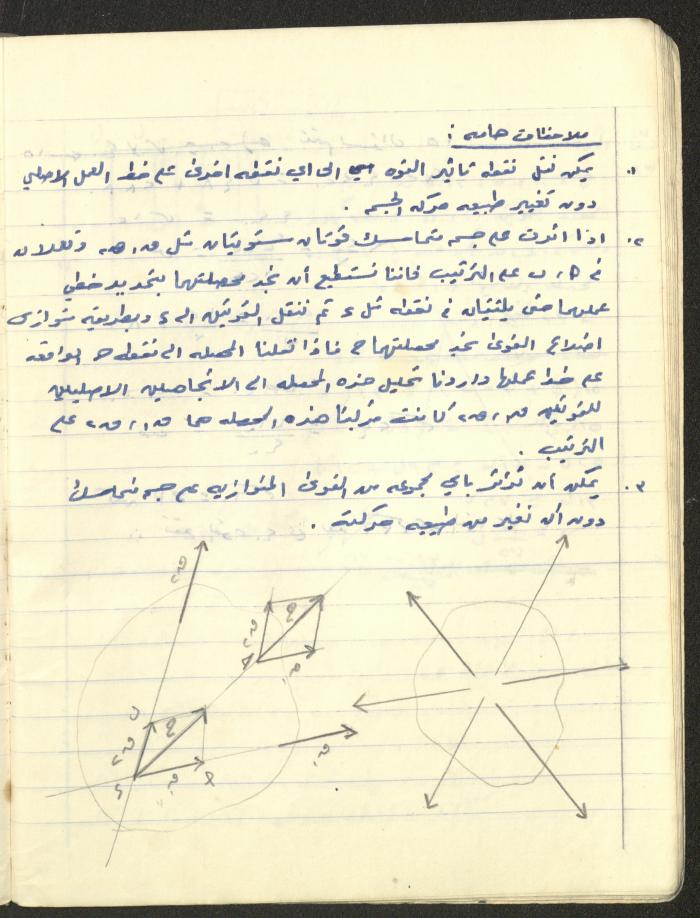 ملاحظات هامه :
١. يمكن نقل نقطه تاثير القوه الى اي نقطه اخرى على خط العمل الاصلي
دون تغيير طبيعه حركه الجسم .
٢. اذا اثرت على جسم متماسك قوتان مستويتان مثل ق١، ق٢ وتعملان
في ا، ب على الترتيب فاننا نستطيع أن نجد محصلتهما بتمديد خطي
عملهما حتى يلتقيان في نقطه مثل ء ثم ننقل القوتين الى ء وبطريقه متوازى
اضلاع القوى نجد محصلتهما ح فاذا نقلنا المحصله الى نقطه هـ الواقعه
على خط عملها واردنا تحليل هذه المحصله الى الاتجاهين الاصليين
للقوتين ق١، ق٢ كانت مركبتا هذه المحصله هما ق١، ق٢ على
الترتيب .
٣. يمكن أن نؤثر باي مجموعه من القوى المتوازنه على جسم متماسك
دون أن نغير من طبيعه حركته .
ق٢
هـ
ق٢
ح
ق١
ب
ق٢
ح
ء
ق١
ا
ق١